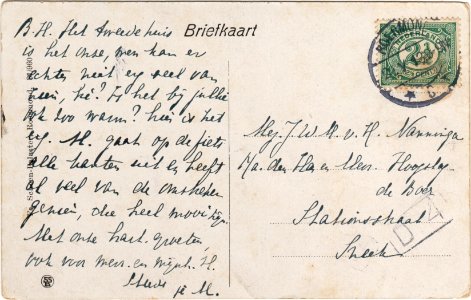 Briefkaart
B.H. Het tweede huis
is het onze, men kan er
echter niet erg veel van
zien, hè? Is het bij jullie
ook zoo warm? hier is het
erg. M. gaat op de fiets
alle kanten uit en heeft
al veel van de omstreken
gezien, die heel mooi zijn.
Met onze hart. groeten,
ook voor mevr. en mijnh. H.
je M.
Mej. J. W. M. v. H. Nanninga
de Boer
Stationsstraat
Sneek